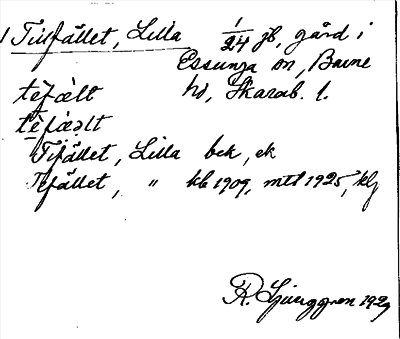 Tillfället, Lilla 1/24 jb, gård i
Essunga sn, Barne
hd, Skarab. l.
tèfælt
Tifället, Lilla bek, ek
Tefället, " kb 1909, mtl 1925, klj
R. Ljunggren 1929